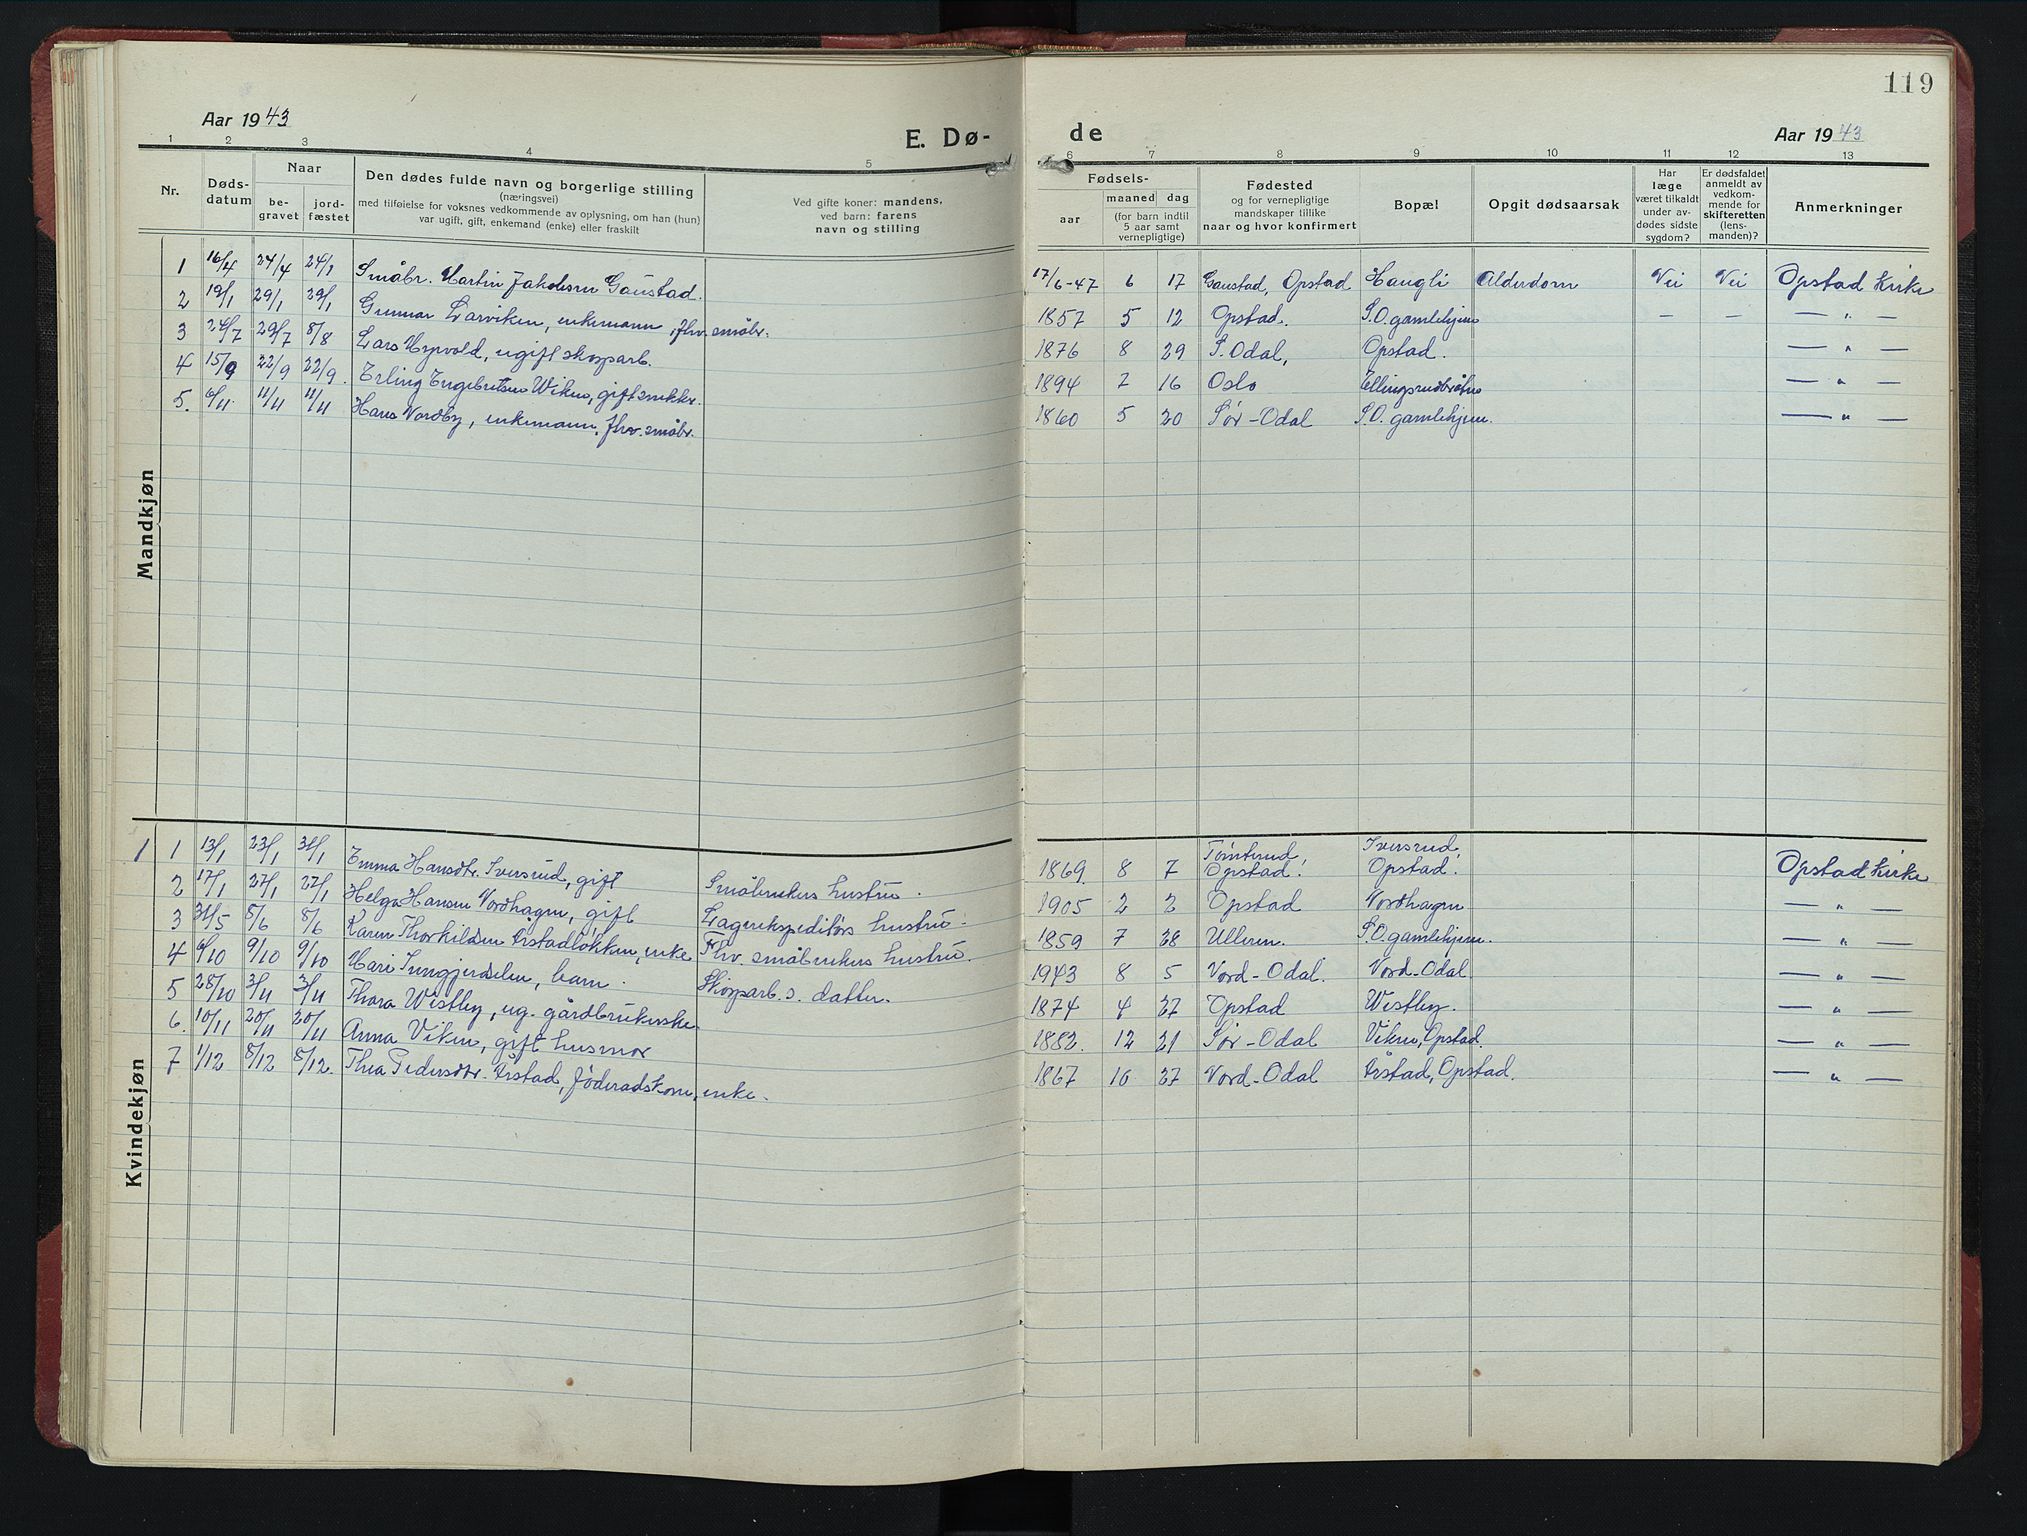 119
Aar 1943
E. Dø-
de
Aar 1943
1 2 3 4 5 6 7 8 9 10 11 12 13
Nr.
Døds-
datum
Naar
be-
gravet
jord-
fæstet
Den dødes fulde navn og borgerlige stilling
(næringsvei)
med tilføielse for voksnes vedkommende av oplysning, om han (hun)
var ugift, gift, enkemand (enke) eller fraskilt
Ved gifte koner: mandens,
ved barn: farens
navn og stilling
Fødsels-
aar
maaned dag
(for barn indtil
5 aar samt
vernepligtige)
Fødested
og for vernepligtige
mandskaper tillike
naar og hvor konfirmert
Bopæl
Opgit dødsaarsak
Har
læge
været tilkaldt
under av-
dødes sidste
sygdom?
Er dødsfaldet
anmeldt av
vedkom-
mende for
skifteretten
(lens-
manden)?
Anmerkninger
Mandkjøn
1 16/4 24/4 Småbr. Martin Jakobsen Gaustad. 17/6-47 6 17 Gaustad, Opstad Haugli Alderdom Nei Nei Opstad Kirke
2 19/1 29/1 29/1 Gunnar Larviken, enkemann, fhv. småbr. 1857 5 12 Opstad. S.O. gamlehjem — — — " —
3 24/7 29/7 8/8 Lars Myrvold, ugift skogsarb. 1876 8 29 S. Odal, Opstad. — " —
4 15/9 22/9 22/9 Erling Engebretsen Wiken, gift snekker. 1894 2 16 Oslo — " —
5. 6/11 11/11 11/11 Hans Nordby, enkemann, fhv. småbr. 1860 5 20 Sør-Odal S.O. gamlehjem. — " —
Kvindekjøn
1 1 13/1 23/1 31/1 Emma Hansdtr. Iversrud, gift Småbrukers hustru. 1869. 8 7 Tomterud, Opstad. Iversrud, Opstad. Opstad Kirke
2 17/1 27/1 27/1 Helga Hansen Nordhagen, gift Lagerekspeditørs hustru. 1905 2 2 Opstad Nordhagen — " —
3 31/5 8/6 8/6 Karen Thorkildsen Årstadløkken, enke Fhv. småbrukers hustru. 1859 7 28 Ulleren. S.O. gamlehjem. — " —
4 6/10 9/10 9/10 Mari barn. Skogsarb.s. datter. 1943 8 5 Nord-Odal. Nord-Odal. — " —
5 28/10 3/11 3/11 Thora Westby, ug. gårdbrukerske. 1874 4 27 Opstad Westby. — " —
6. 10/11 20/11 20/11 Anna Viken, gift husmor 1882. 12 21 Sør-Odal Viken, Opstad. — " —
7 1/12 8/12 8/12. Thea Pedersdtr. Årstad, føderådskone, enke. 1867 10 27 Nord-Odal Årstad, Opstad. — " —